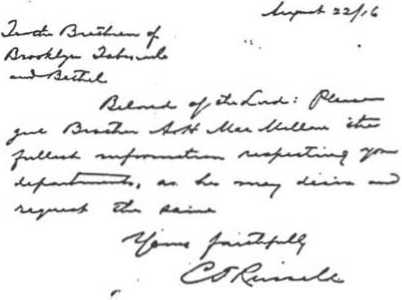 August 22/16
To the Brethren of
Brooklyn Tabernacle
and Bethel
Beloved of the Lord: Please
give Brother A H Mac Millan the
fullest information respecting your
departments, as he may desire and
request the same
Yours faithfully
C T Russell